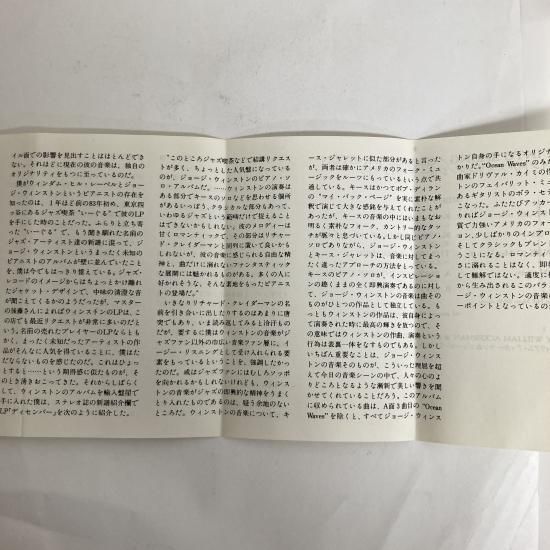 イル面での影響を見出すことはほとんどでき
ない。それほどに現在の彼の音楽は、独自の
オリジナリティをもつに至っているのだ。
僕がウィンダム・ヒル・レーベルとジョー
ジ・ウィンストンというピアニストの存在を
知ったのは、1年ほど前の83年初め、東京四
ッ谷にあるジャズ喫茶“いーぐる”で彼のLP
を手にした時のことだった。ふらりと立ち寄
った“いーぐる”で、もう聞き馴れた名前の
ジャズ・アーティスト達の新譜に混って、ジ
ョージ・ウィンストンというまったく未知の
ピアニストのアルバムが壁に並んでいたこと
を、僕は今でもはっきり憶えている。ジャズ・
レコードのイメージからはちょっとかけ離れ
たジャケット・デザインで、中味の清澄な音
が聞こえてくるかのようだったが、マスター
の後藤さんによればウィンストンのLPは、こ
の店でも最近リクエストが非常に多いのだと
いう。名前の売れたプレイヤーのLPならとも
かく、まったく未知だったアーティストの作
品がそんなに人気を得ていることに、僕はた
だならないものを感じたのだ。これはひょっ
とすると……という期待感に似たものが、そ
のとき湧きおこってきた。それからしばらく
して、ウィンストンのアルバムを輸入盤店で
手に入れた僕は、ステレオ誌の新譜紹介欄で
LP『ディセンバー』を次のように紹介した。
“このところジャズ喫茶などで結構リクエス
トが多く、ちょっとした人気盤になっている
のが、ジョージ・ウィンストンのピアノ・ソ
ロ・アルバムだ。……ウィンストンの演奏は
ある部分でキースのソロなどを思わせる個所
があるいっぽう、クラシカルな部分もあって、
いわゆるジャズという範疇だけで捉えること
はできないかもしれない。彼のメロディーは
甘くロマンティックで、その部分はリチャー
ド・クレイダーマンと同列に置いて良いかも
しれないが、彼の音楽に感じられる自由な精
神と、曲だけに溺れないファンタスティック
な展開には魅かれるものがある。多くの人に
好かれそうな、そんな素地をもったピアニス
トの登場だ。”
いきなりリチャード・クレイダーマンの名
前を引き合いに出したりするのはあまりに唐
突でもあり、いま読み返してみると冷汗もの
だが、要するに僕はウィンストンの音楽がジ
ャズファン以外の広い音楽ファン層に、イ
ージー・リスニングとして受け入れられる要
素をもっているということを、強調したかっ
たのだ。或はジャズファンにはむしろソッポ
を向かれるかもしれないけれども、ウィンス
トンの音楽がジャズの即興的な精神をうまく
とり入れたものであるのは、疑う余地のない
ところだ。ウィンストンの音楽について、キ
ース・ジャレットに似た部分があると言った
が、両者は確かにアメリカのフォーク・ミュ
ージックをルーツにもっているという点で共
通している。キースはかつてボブ・ディラン
の“マイ・バック・ページ”を実に素朴な解
釈で演じて大きな感銘を与えてくれたことが
あったが、キースの音楽の中にはいまもなお
明るく素朴なフォーク、カントリー的なタッ
チが脈々と息づいている。しかし同じピアノ・
ソロでありながら、ジョージ・ウィンストン
とキース・ジャレットは、音楽に対してまっ
たく違ったアプローチの方法をとっている。
キースのピアノ・ソロが、インスピレーショ
ンの趣くままの全く即興演奏であるのに対し
て、ジョージ・ウィンストンの音楽は曲その
ものがひとつの作品として独立している。も
っともウィンストンの作品は、彼自身によっ
て演奏された時に最高の輝きを放つので、そ
の意味ではウィンストンの作曲、演奏という
行為は表裏一体をなすものでもある。しかし
いちばん重要なことは、ジョージ・ウィンス
トンの音楽そのものが、こういった理屈を超
えて今日の音楽シーンの中で、人々の心のよ
りどころとなるような清新で美しい響きを聞
かせてくれていることだろう。このアルバム
に収められている曲は、A面3曲目の“Ocean
Waves”を除くと、すべてジョージ・ウィンス
トン自身の手になるオリジナ
かりだ。“Ocean Waves”のみだ
曲家ドリヴァル・カイミの作
トンのフェイバリット・ミュ
あるギタリストのボラ・セテ
こなった。ふたたびアッカー
りすればジョージ・ウィンスト
質で力強いアメリカのフォー
ョン、少しばかりのインプロ
そしてクラシックもブレン
うことになる。ロマンティ
に溺れることはなく、即
して難解ではない。適度に
から生み出されるこのバラ
ージ・ウィンストンの音楽
ーポイントとなっているのか